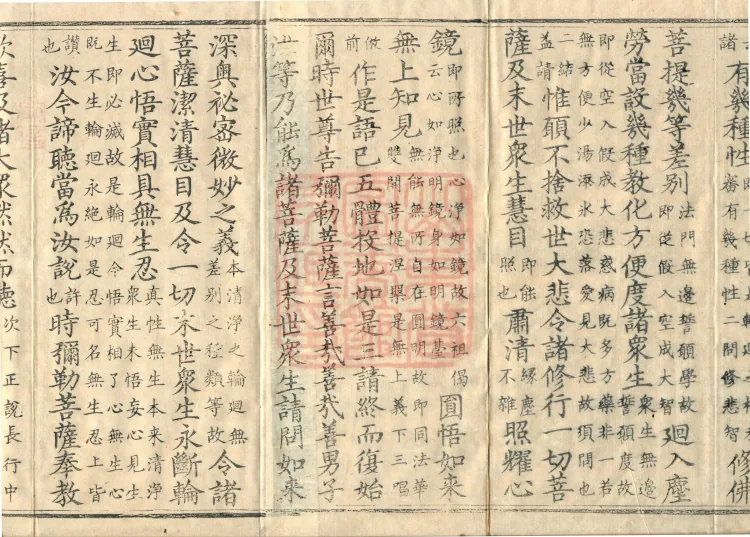 諸
有幾種性
審有幾種性二問修悲智
修佛
菩提幾等差別
法門無邊誓願學故
即從假入空成大智
廻入塵
勞當設幾種教化方便度諸衆生
衆生無邊
誓願度故
即從空入假成大悲惑病既多方藥非一若
無方便少湯添氷恐落愛見大悲故須問也
二結
益請
惟願不捨救世大悲令諸修行一切菩
薩及末世衆生慧目
即能
照也
肅清
塵
不雜
照耀心
鏡
即所照也心淨如鏡故六祖偈
云心如浄明鏡身如明鏡臺
圓悟如來
無上知見
無能無所自在圓明故即同法華
雙開菩提涅槃是無上義下三唱
倣
前
作是語已五體投地如是三請終而復始
爾時世尊告彌勒菩薩言善哉善哉善男子
汝等乃能爲諸菩薩及末世衆生請問如來
深奥祕密微妙之義
本清浄之輪廻無
差別之種類等故
令諸
菩薩潔清慧目及令一切末世衆生永斷輪
廻心悟實相具無生忍
真性無生本来清浄
衆生未悟妄心見生
生即必滅故是輪廻今悟實相了心無生心
既不生輪廻永絶如是忍可名無生忍上皆
讃
也
汝今諦聽當爲汝說
許
也
時彌勒菩薩奉教
歡喜及諸大衆然然而聽
次下正說長行中